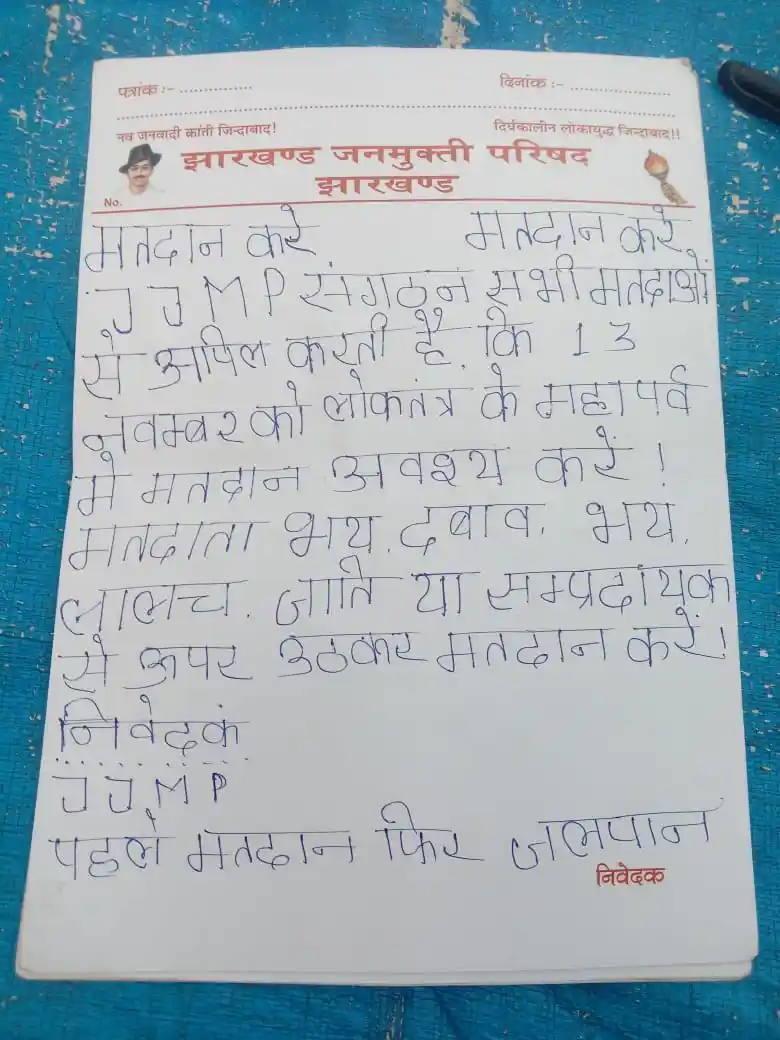 पत्रांक :- ............... दिनांक :- ......................
नव जनवादी क्रांती जिन्दाबाद! दिर्घकालीन लोकायुद्ध जिन्दाबाद!!
झारखण्ड जनमुक्ती परिषद
झारखण्ड
No.
मतदान करे मतदान करे
JJMP संगठन सभी मतदाओं
से अपिल करती है. कि 13
नवम्बर को लोकतंत्र के महापर्व
मे मतदान अवश्य करें!
मतदाता भय, दबाव, भय,
लालच, जाति या सम्प्रदायक
से ऊपर उठकर मतदान करें!
निवेदक
JJMP
पहले मतदान फिर जलपान
निवेदक